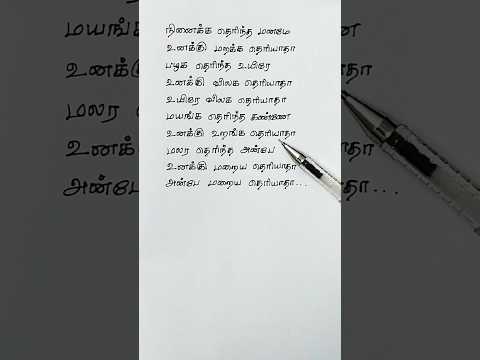 நினைக்க தெரிந்த மனமே
உனக்கு மறக்க தெரியாதா
பழக தெரிந்த உயிரே
உனக்கு விலக தெரியாதா
உயிரே விலக தெரியாதா
மயங்க தெரிந்த கண்ணே
உனக்கு உறங்க தெரியாதா
மலர தெரிந்த அன்பே
உனக்கு மறைய தெரியாதா
அன்பே மறைய தெரியாதா...